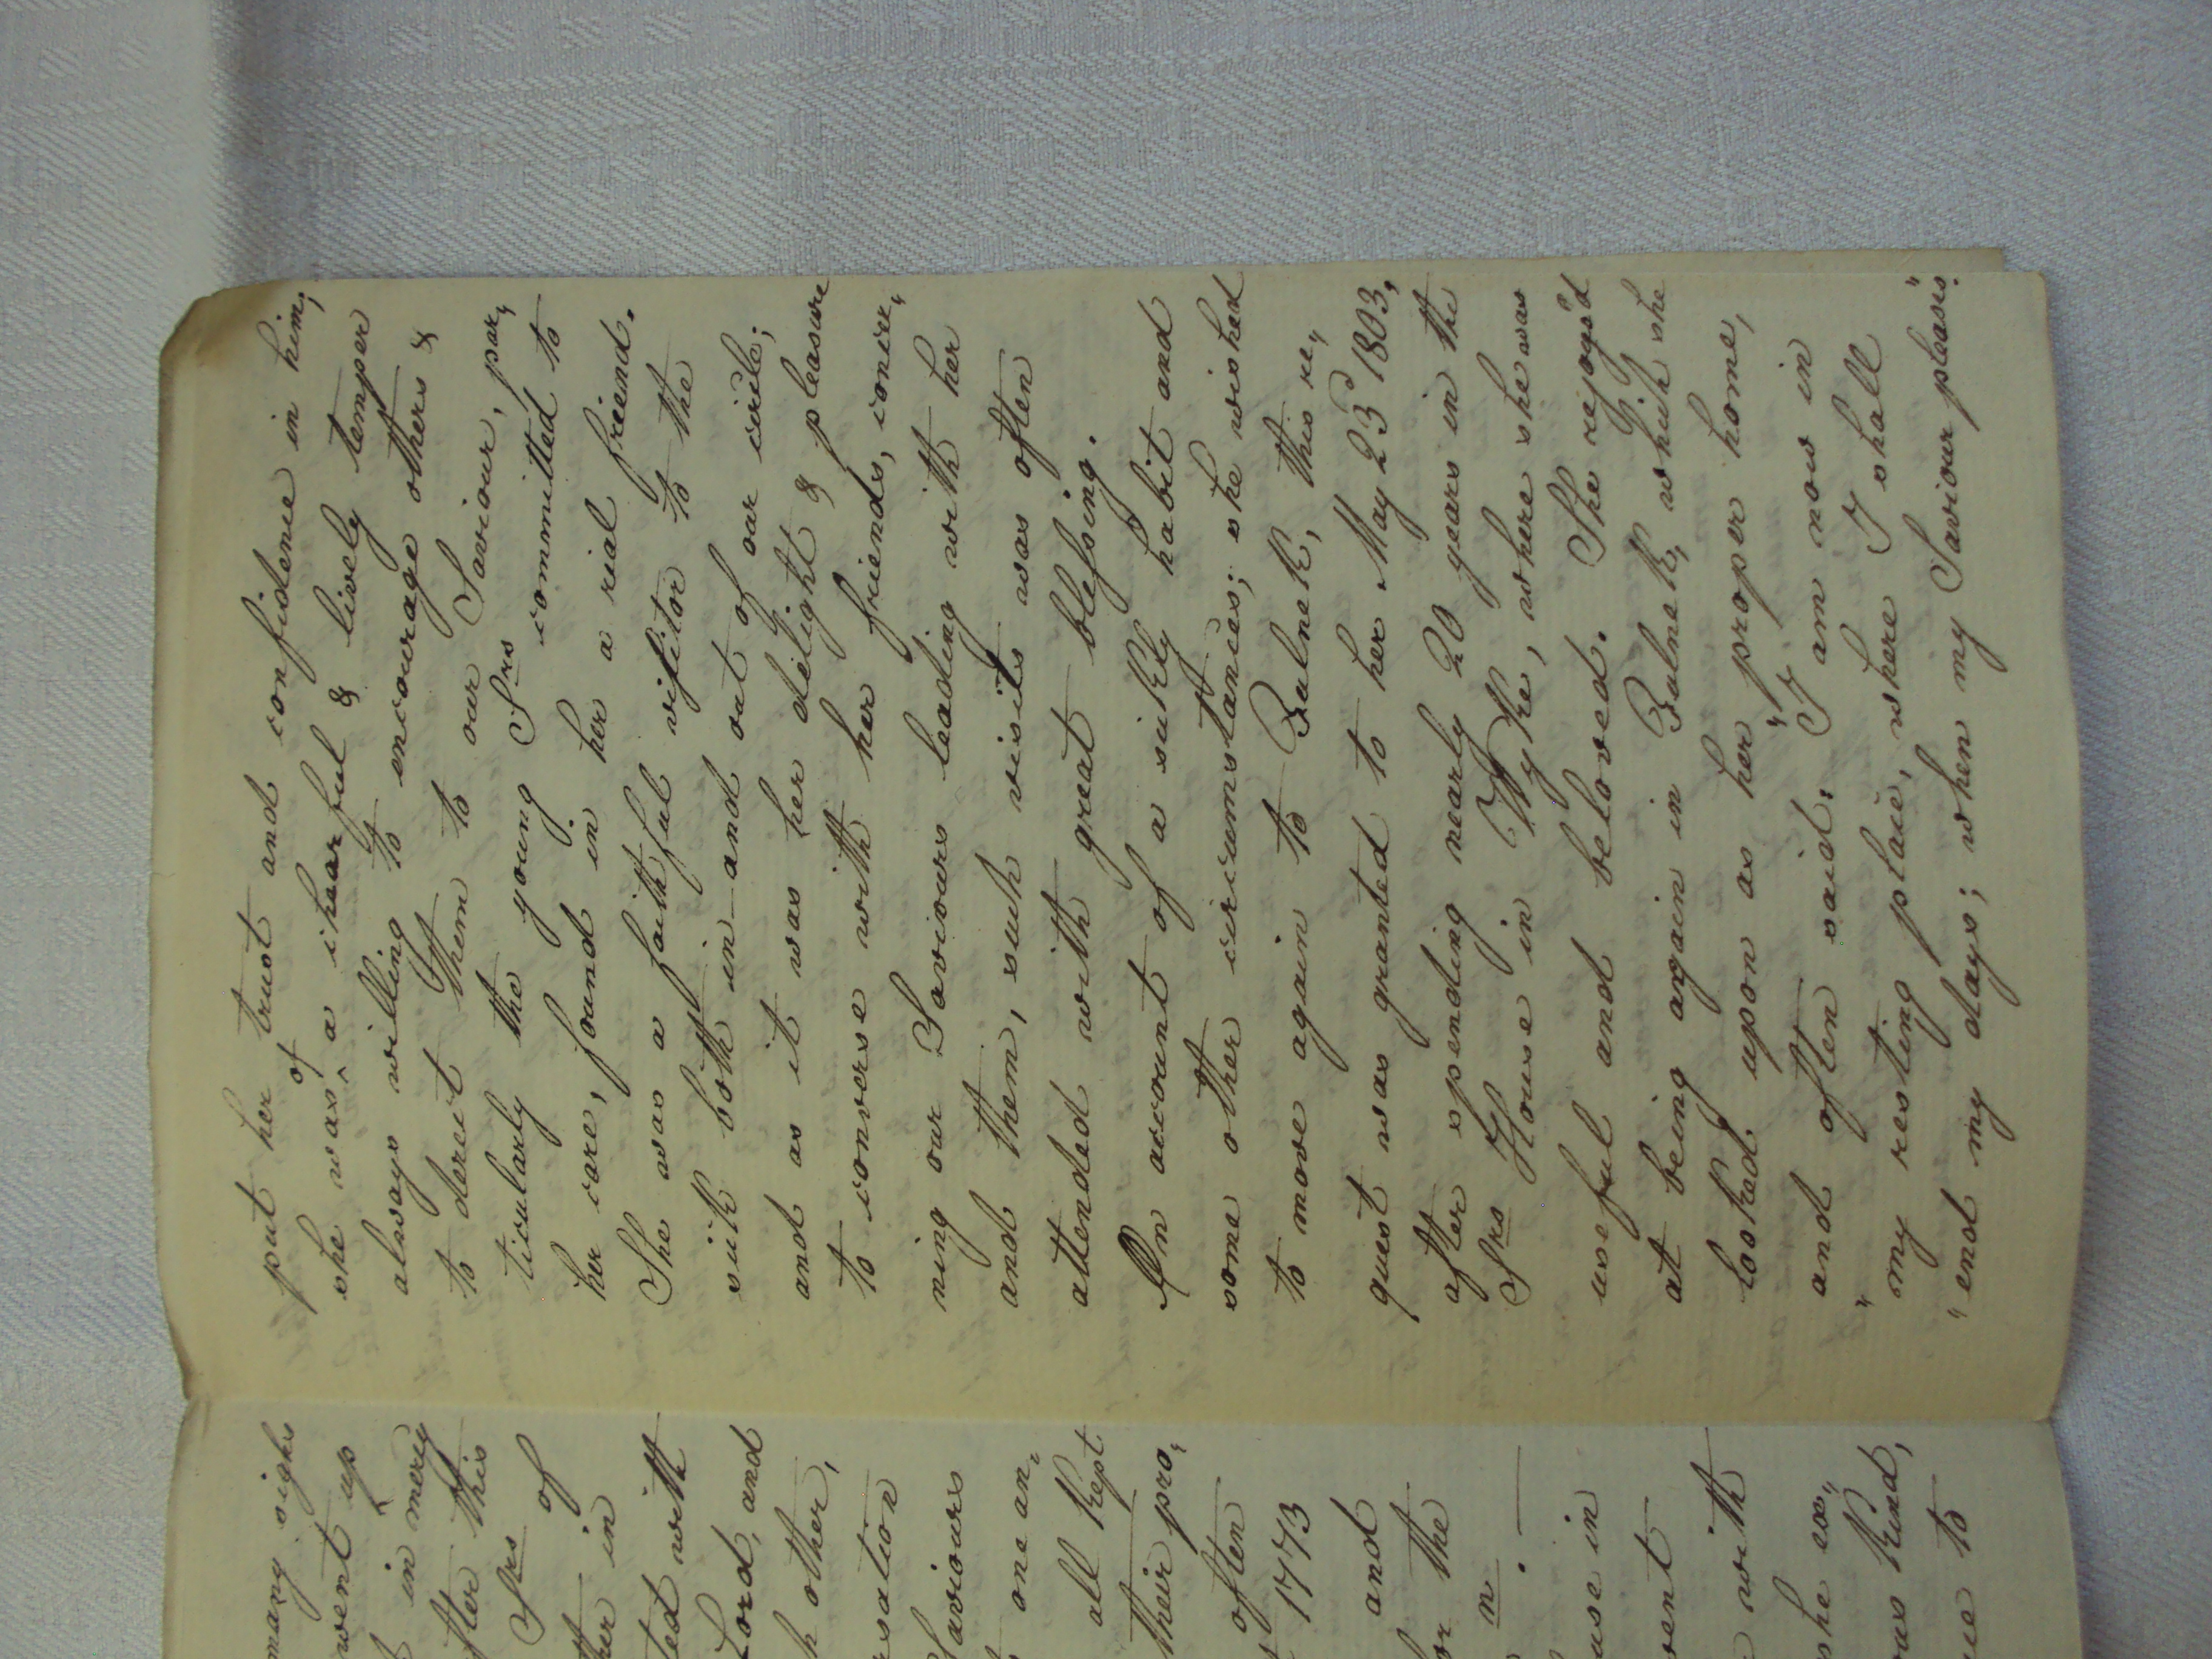 many sighs
went up
in mercy
after this
Srs of
ther in
ted with
Lord, and
h other,
rsation
Saviours
one an„
all Kept
their pro„
often
1773
and
for the
n
use in
went
with
she ex„
ous Kind,
ue to
put her trust and confidence in him;
she was of a chearful & lively temper
always willing to encourage others &
to derect them to our Saviour, par„
ticularly the young Srs committed to
her care, found in her a rial friend.
She was a faithful visitor to the
sick both in-and out of our circle;
and as it was her delight & pleasure
to converse with her friends, concer„
ning our Saviours leading with her
and them, such visits was often
attended with great blessing.
On account of a sickly habit and
some other circumstances; she wished
to move again to Fulnek, this re„
quest was granted to her May 23d 1803,
after spending nearly 20 years in the
Srs House in Wyke, where she was
useful and beloved. She rejoys'd
at being again in Fulnek, which she
looked upon as her proper home,
and often said: "I am now in
"my resting place, where I shall
"end my days; when my Saviour pleases."